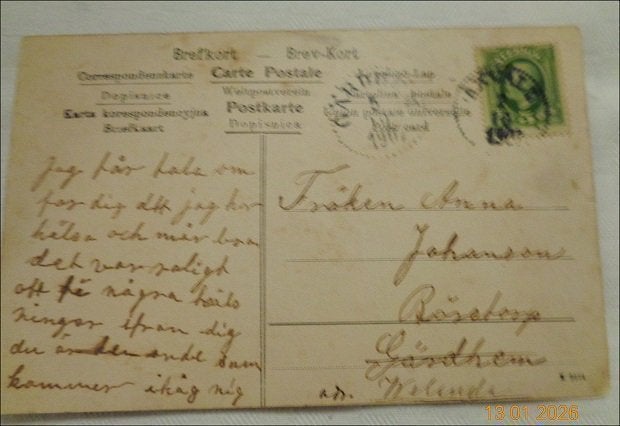 Brefkort — Brev-Kort
Correspondenzkarte Carte Postale
Dopisnice Weltpostverein
Karta korespondencyjna Postkarte
Briefkaart Dopisnica
190
Jag får tala om
for dig att jag har
hälsa och mår bra
det var roligt
att få några häls
ningar ifran dig
du är den ende som
kommer ihåg mig
Fröken Anna
Johanson
Bösetorp
Gärdhem
adr. Welanda
13 01 2026